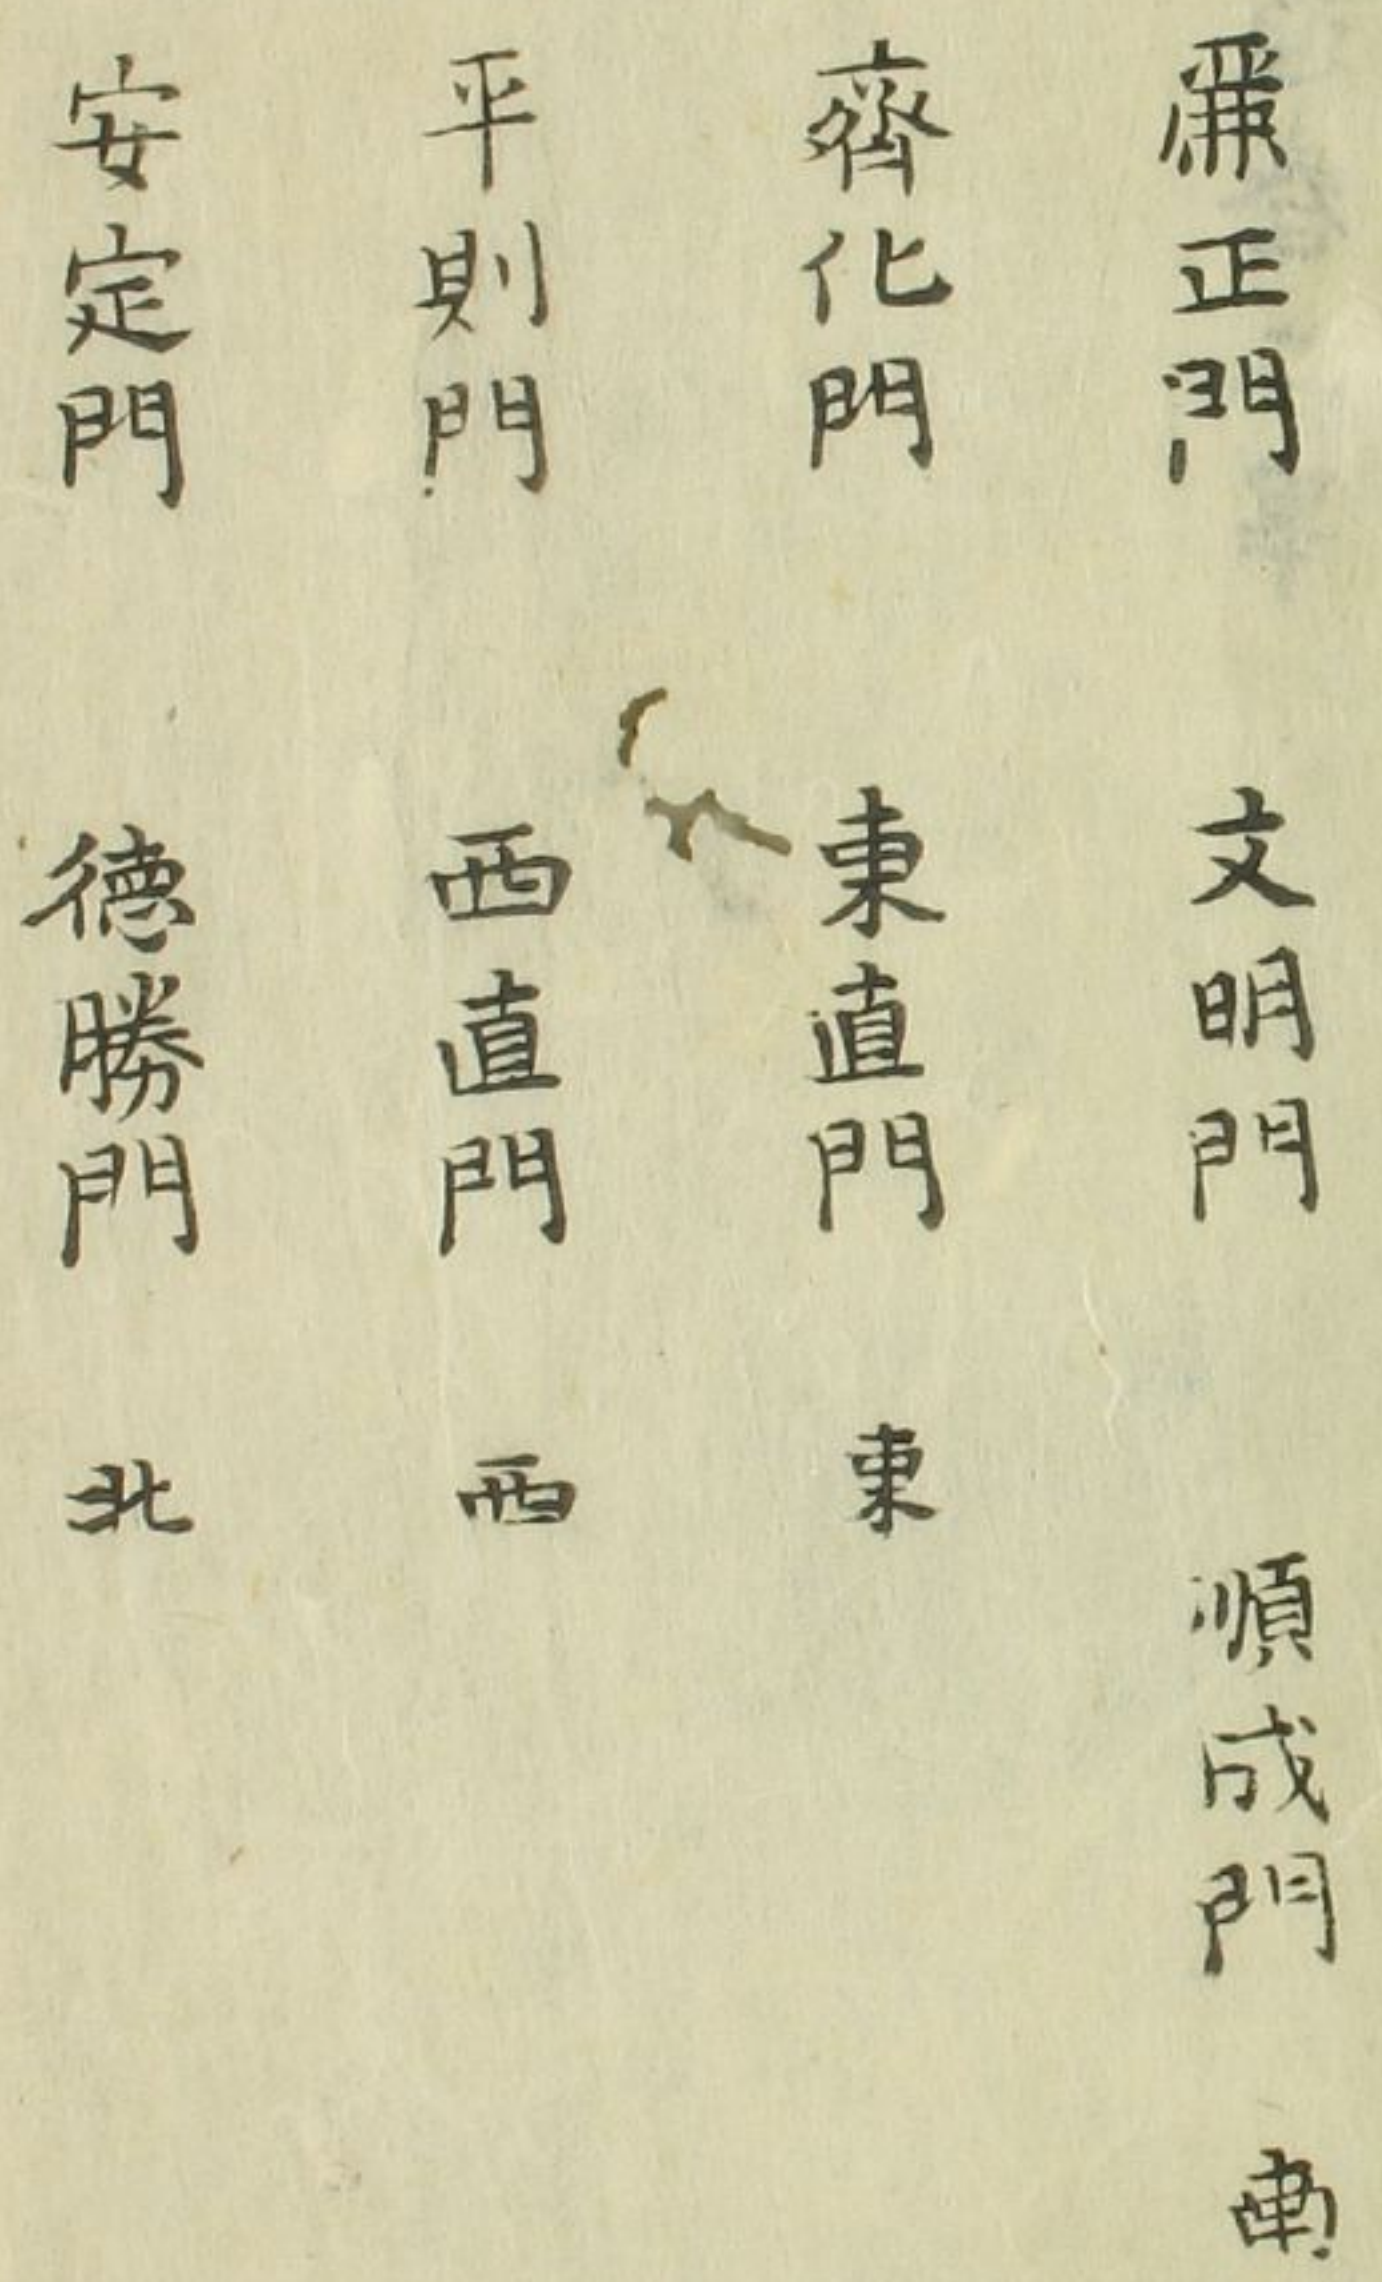 廉正門 文明門 順成門 南
齊化門 東直門 東
平則門 西直門 西
安定門 德勝門 北